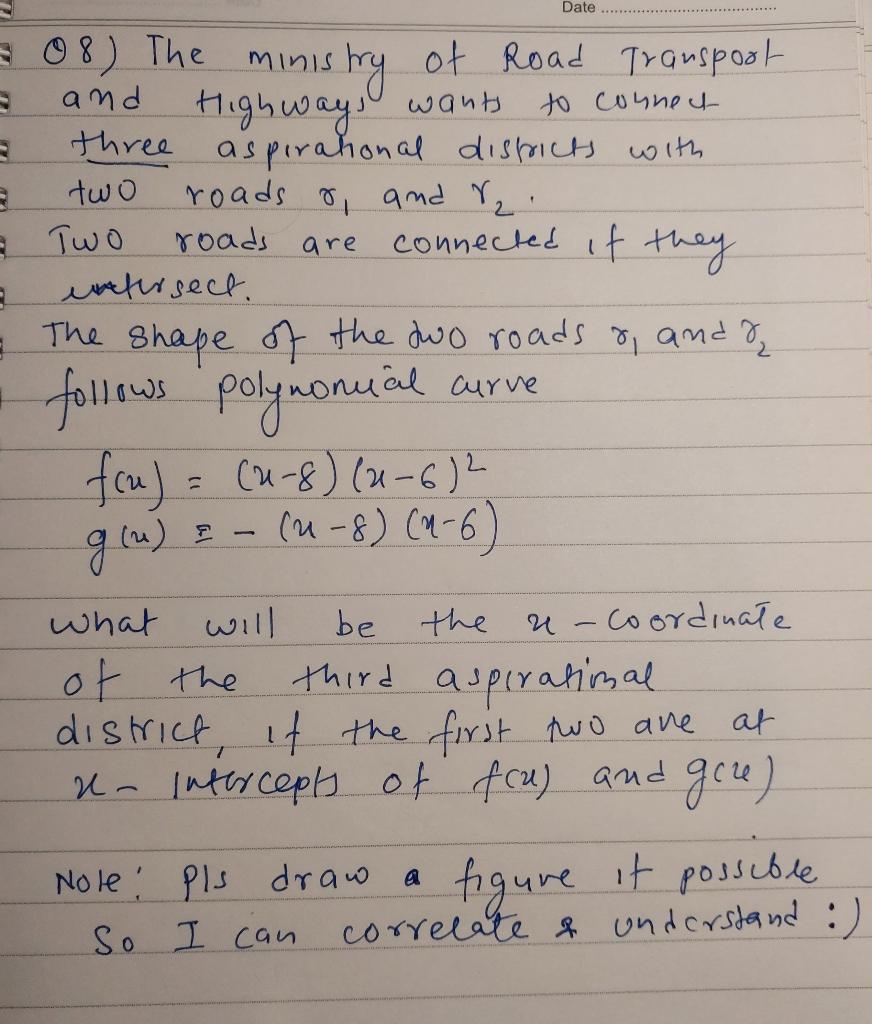 Date
Q8) The ministry of Road Transport
and Highways wants to connect
three aspirational districts with
two roads r₁ and r₂.
Two roads are connected if they
intersect.
The shape of the two roads r₁ and r₂
follows polynomial curve
f(x) = (x-8)(x-6)²
g(x) = -(x-8)(x-6)
what will be the x-coordinate
of the third aspirational
district, if the first two are at
x- intercepts of f(x) and g(x)
Note: Pls draw a figure if possible
So I can correlate & understand :)